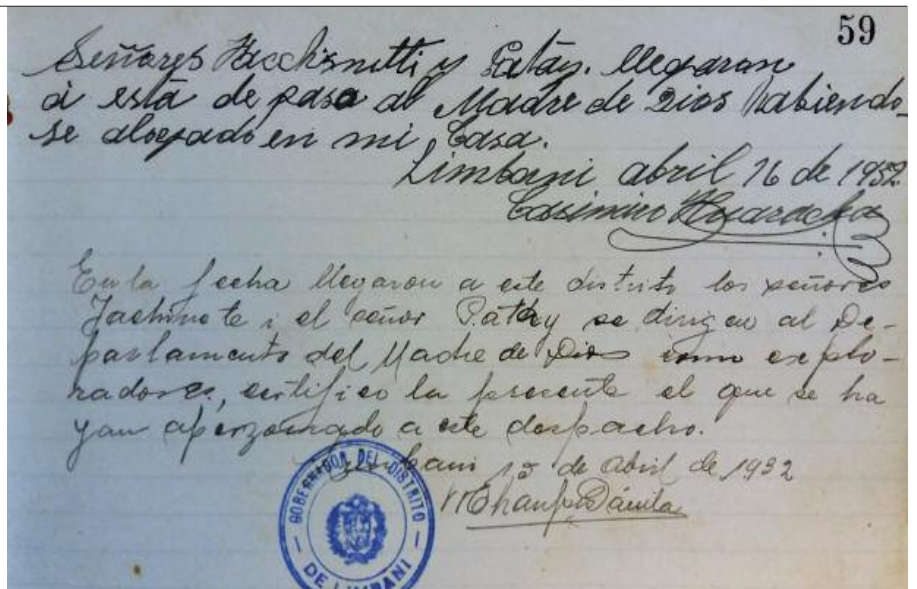 59
Señores Hacchisnetti y Patáy. llegaron
á esta de paso al Madre de Dios habiendo_
se alogado en mi Casa.
Limbani abril 16 de 1932
Casimiro Huaracha
En la fecha llegaron a este distrito los señores
Jachinote i el señor Patáy se dirigen al De-
partamento del Madre de Dios como explo-
radores, certifico la presente el que se ha
yan aperzonado a este despacho.
Limbani 15 de Abril de 1932
Dávila
GOBERNADOR DEL DISTRITO
DE LIMBANI